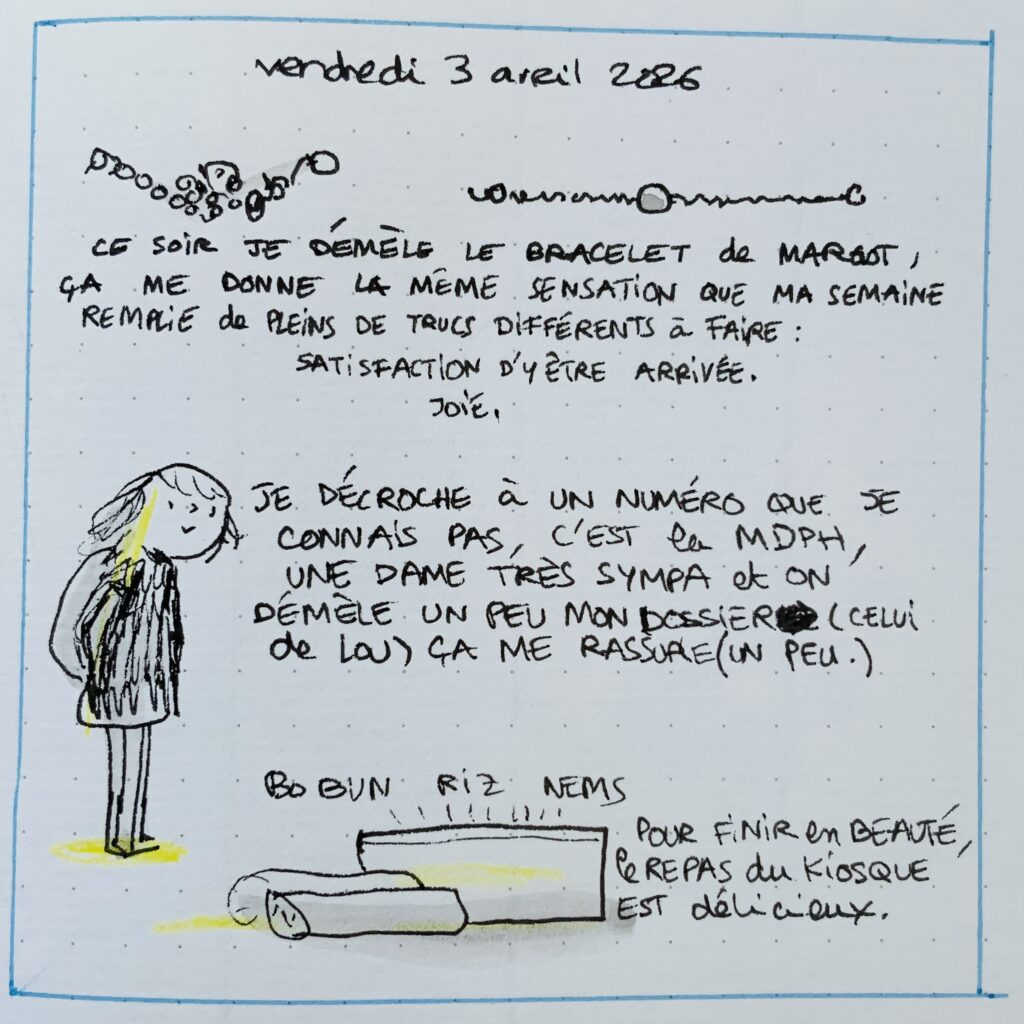 vendredi 3 avril 2026
CE SOIR JE DÉMÈLE LE BRACELET de MARGOT,
ÇA ME DONNE LA MÊME SENSATION QUE MA SEMAINE
REMPLIE de PLEINS DE TRUCS DIFFÉRENTS à FAIRE :
SATISFACTION D'Y ÊTRE ARRIVÉE.
JOIE.
JE DÉCROCHE à UN NUMÉRO QUE JE
CONNAIS PAS, C'EST la MDPH,
UNE DAME TRÈS SYMPA et ON
DÉMÈLE UN PEU MON DOSSIER (CELUI
de LOU) ÇA ME RASSURE (UN PEU.)
BO BUN RIZ NEMS
POUR FINIR en BEAUTÉ,
le REPAS du KIOSQUE
EST délicieux.